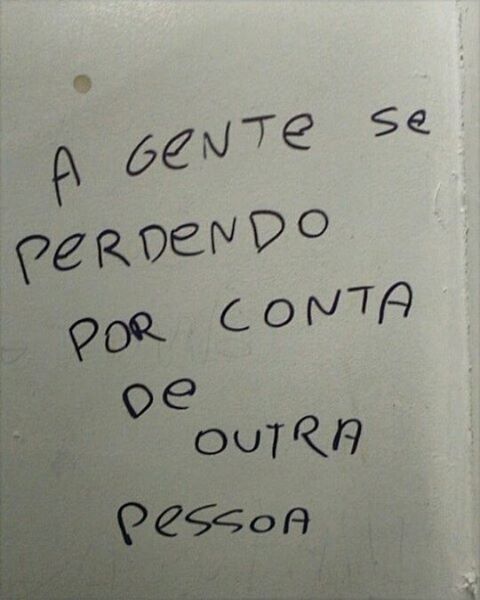 A GeNTe se
PeRDeNDO
POR CONTA
De
OUTRA
PessOA